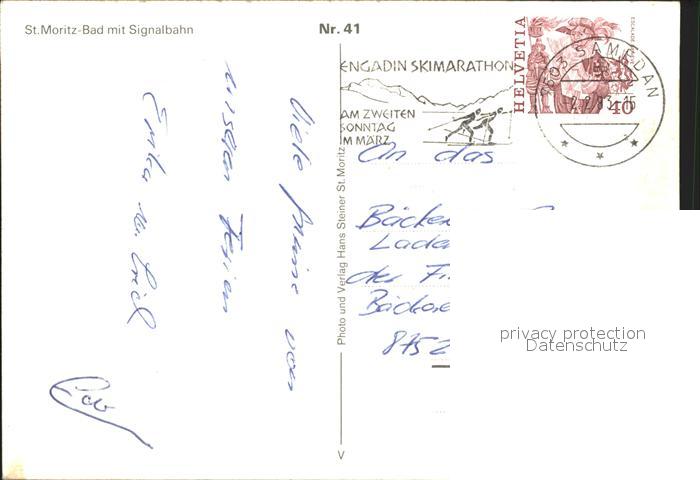 St.Moritz-Bad mit Signalbahn
Nr. 41
Viele Grüsse von
unseren Ferien
Erika u.
ENGADIN SKIMARATHON
AM ZWEITEN
SONNTAG
IM MÄRZ
HELVETIA
ESCALADE
SAMEDAN
40
An das
Bäcker
Lade
der Fi
Bäckere
8752
Photo und Verlag Hans Steiner St. Moritz
V
privacy protection
Datenschutz